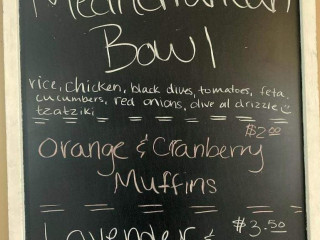 Mediterranean
Bowl
rice, chicken, black olives, tomatoes, feta,
cucumbers, red onions, olive oil drizzle
tzatziki
$2.00
Orange & Cranberry
Muffins
$3.50
Lavender &